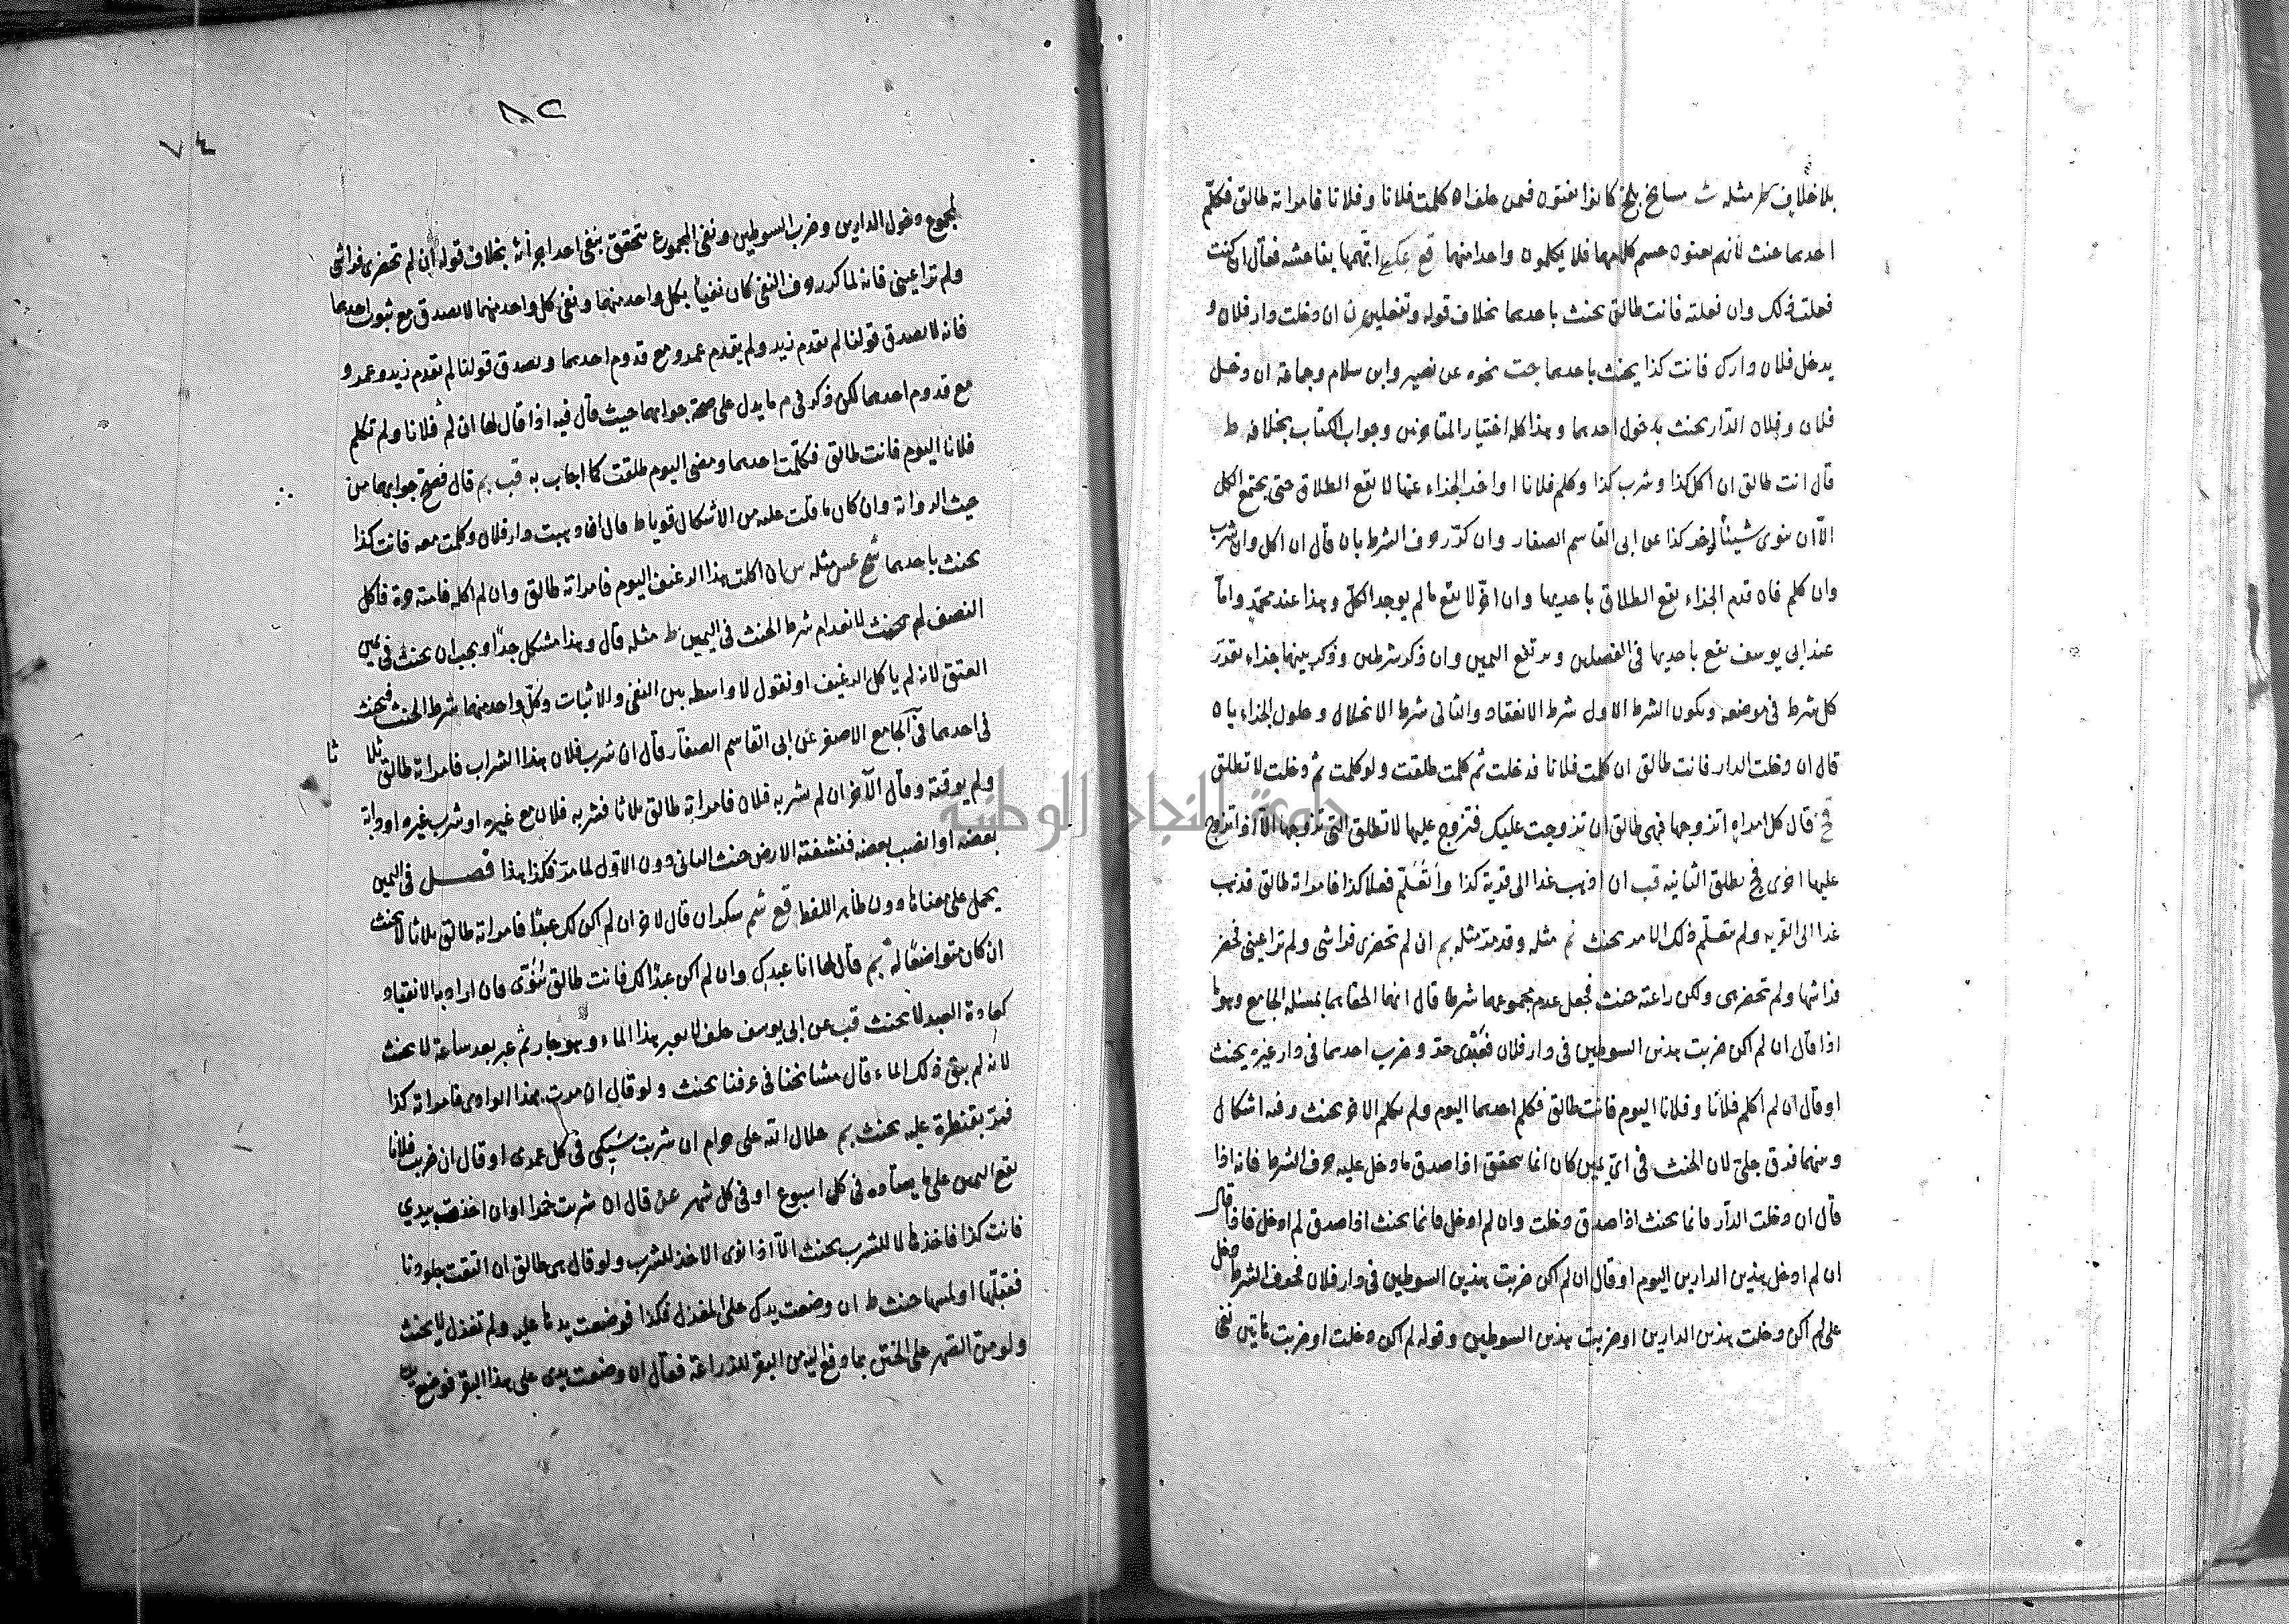 بلا خلاف ط مثله ث مشايخ بلخ كانوا يفتون فيمن حلف ان كلمت فلانا وفلانا فامراته طالق فكلم
احدهما حنث لانهم يعنون كلامهما فلا يكلمون واحدا منهما قع عك اتهمها بفاحشة فقال ان كنت
فعلت ذلك وان فعلته فانت طالق يحنث باحدهما بخلاف قوله وتفعلين ن ان دخلت دار فلان و
يدخل فلان دارك فانت كذا يحنث باحدهما جت نحوه عن نصير وابن سلام وجماعة ان دخل
فلان وفلان الدار يحنث بدخول احدهما وهذا كله اختيار المتاخرين وجواب الكتاب بخلافه ط
قال انت طالق ان اكل كذا وشرب كذا وكلم فلانا او اخر الجزاء عنها لا يقع الطلاق حتى يجتمع الكل
الا ان ينوى شيئا اخر كذا عن ابى القاسم الصفار وان كرر حرف الشرط بان قال ان اكل وان شرب
وان كلم فان قدم الجزاء يقع الطلاق باحديها وان اخر لا يقع ما لم يوجد الكل وهذا عند محمد واما
عند ابى يوسف يقع باحديها فى الفصلين وترتفع اليمين وان ذكر شرطين وذكر بينهما جزاء تقرر
كل شرط فى موضعه ويكون الشرط الاول شرط الانعقاد والثانى شرط الانحلال وحلول الجزاء بان
قال ان دخلت الدار فانت طالق ان كلمت فلانا فدخلت ثم كلمت طلقت ولو كلمت ثم دخلت لا تطلق
فخ قال كل امراة اتزوجها فهى طالق ان تزوجت عليك فتزوج عليها لا تطلق التى تزوجها الا اذا تزوج
عليها اخرى فخ تطلق الثانية قب ان اذهب غدا الى قرية كذا واتعلم فعلا كذا فامراته طالق فذهب
غدا الى القرية ولم يتعلم ذلك الامر يحنث ثم مثله وقد مر مثله بم ان لم تحضرى فراشى ولم تراعينى فحضر
فراشها ولم تحضرى ولكن راعته حنث فجعل عدم مجموعهما شرطا قال انهما الحقاهما بمسئلة الجامع وهو ما
اذا قال ان لم اكن ضربت هذين السوطين فى دار فلان فعبدى حر وضرب احدهما فى دار غيره يحنث
او قال ان لم اكلم فلانا وفلانا اليوم فانت طالق فكلم احدهما اليوم ولم يكلم الاخر يحنث وفيه اشكال
وبينهما فرق جلى لان الحنث فى اى يمين كان انما يتحقق اذا صدق ما دخل عليه حرف الشرط فانه اذا
قال ان دخلت الدار فانما يحنث اذا صدق دخلت وان لم ادخل فانما يحنث اذا صدق لم ادخل فاذا قال
ان لم ادخل هذين الدارين اليوم او قال ان لم اكن ضربت هذين السوطين فى دار فلان فحرف الشرط دخل
على لم اكن دخلت هذين الدارين او ضربت هذين السوطين وقوله لم اكن دخلت او ضربت هاتين نفى
٨٠٢
٧٤
لمجموع دخول الدارين وضرب السوطين ونفى المجموع يتحقق بنفى احد اجزائه بخلاف قوله ان لم تحضرى فراشى
ولم تراعينى فانه لما كرر حرف النفى كان نفيا بكل واحد منهما ونفى كل واحد منهما لا يصدق مع ثبوت احدهما
فانه لا يصدق قولنا لم يقدم زيد ولم يقدم عمرو مع قدوم احدهما ويصدق قولنا لم يقدم زيد وعمرو
مع قدوم احدهما لكن ذكر فى م ما يدل على صحة جوابهما حيث قال فيه اذا قال لها ان لم فلانا ولم تكلم
فلانا اليوم فانت طالق فكلمت احدهما ومضى اليوم طلقت كما اجاب به قب بم قال فصح جوابهما من
حيث الرواية وان كان ما قلت عليه من الاشكال قويا ط قال اذا ذهبت دار فلان وكلمت معه فانت كذا
يحنث باحدهما شخ عس مثله س ان اكلت هذا الرغيف اليوم فامراته طالق وان لم اكله فامته حرة فاكل
النصف لم يحنث لانعدام شرط الحنث فى اليمين ط مثله قال وهذا مشكل جدا ويجب ان يحنث فى يمين
العتق لانه لم ياكل الرغيف او نقول لا واسطة بين النفى والاثبات وكل واحد منهما شرط الحنث فيحنث
فى احدهما فى الجامع الاصغر عن ابى القاسم الصفار قال ان شرب فلان هذا الشراب فامراته طالق ثلاثا
ولم يوقته وقال الاخر ان لم يشربه فلان فامراته طالق ثلاثا فشربه فلان مع غيره او شرب غيره او دابة
بعضه او انصب بعضه فنشفته الارض حنث الثانى دون الاول لما مر فكذا هذا فصل فى اليمين
يحمل على معناها دون ظاهر اللفظ قع شم سكران قال لاخر ان لم اكن لك عبدا فامراته طالق ثلاثا لا يحنث
ان كان متواضعا له بم قال لها انا عبدك وان لم اكن عبدا لك فانت طالق ينوى فان اراد به الانقياد
كعادة العبد لا يحنث قب عن ابى يوسف حلف لا يعبر هذا الماء وهو جار ثم عبر بعد ساعة لا يحنث
لانه لم يبق ذلك الماء قال مشايخنا فى عرفنا يحنث ولو قال ان مررت بهذا الوادى فامراته كذا
فمر بقنطرة عليه يحنث بم حلال الله على حرام ان شربت سيكى فى كل عمرى او قال ان ضربت فلانا
يقع اليمين على ما يعتاده فى كل اسبوع او فى كل شهر عن قال ان شربت خمرا او ان اخذت بيدى
فانت كذا فاخذها لا للشرب يحنث الا اذا نوى الاخذ للشرب ولو قال هى طالق ان التقت جلودنا
فقبلها او لمسها حنث ط ان وضعت يدك على المغزل فكذا فوضعت يدها عليه ولم تغزل لا يحنث
ولو من الصهر على الختن بما دفع اليه من البقر للزراعة فقال ان وضعت يدى على هذا البقر فوضع